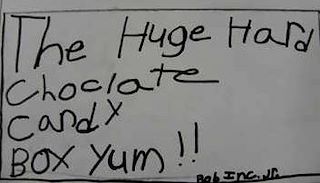 The Huge Hard
Choclate
Candy
Box Yum!!
Bob Inc. Jr.